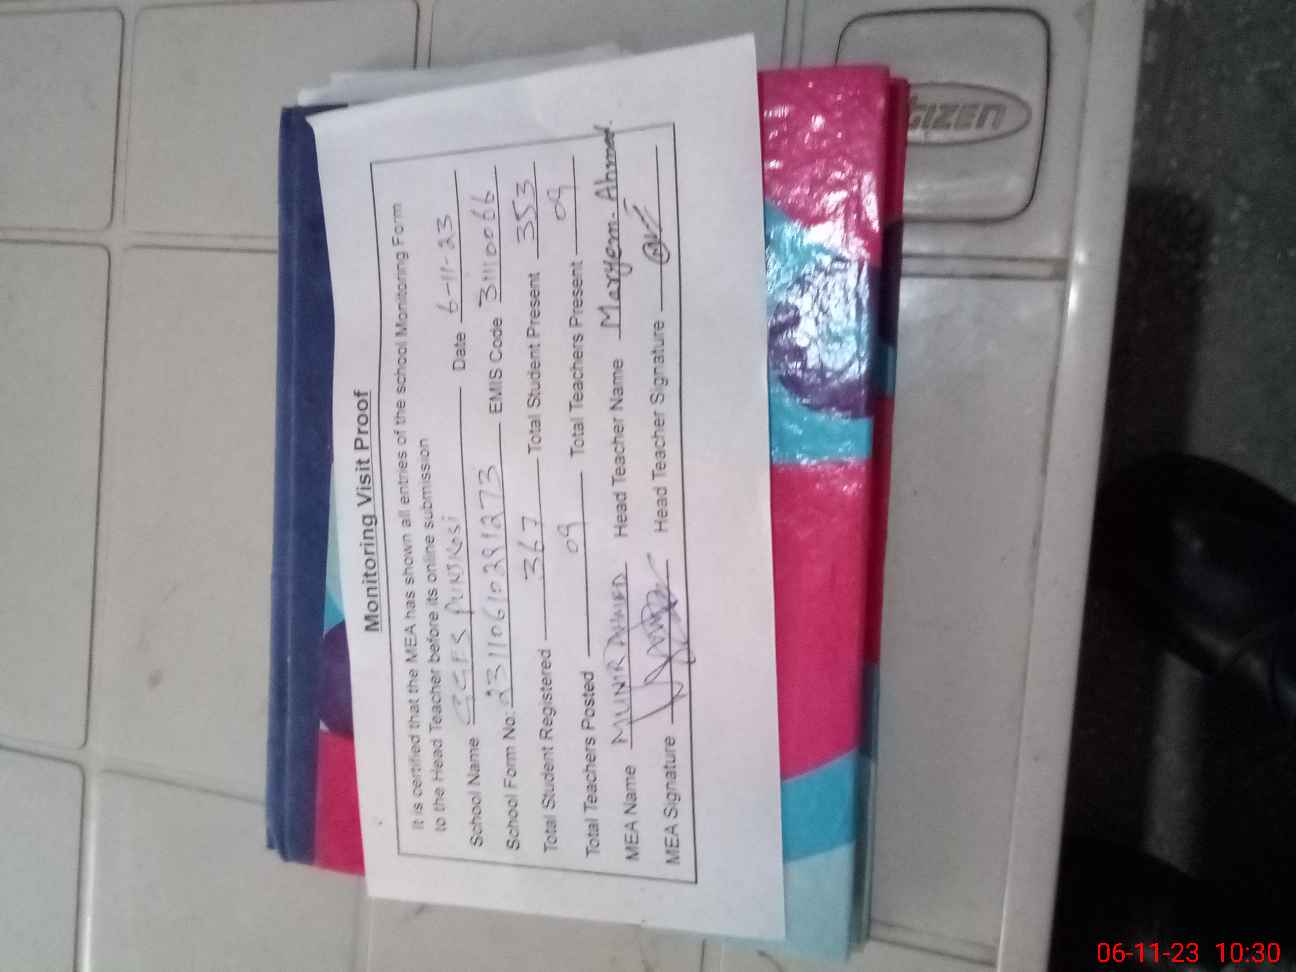 Monitoring Visit Proof
It is certified that the MEA has shown all entries of the school Monitoring Form
to the Head Teacher before its online submission
School Name GGES Date 6-11-23
School Form No: 23110610291273 EMIS Code 31110066
Total Student Registered 367 Total Student Present 353
Total Teachers Posted 09 Total Teachers Present 09
MEA Name MUNIR AHMED Head Teacher Name Maryem Ahmed.
MEA Signature Head Teacher Signature
TIZEN
06-11-23 10:30